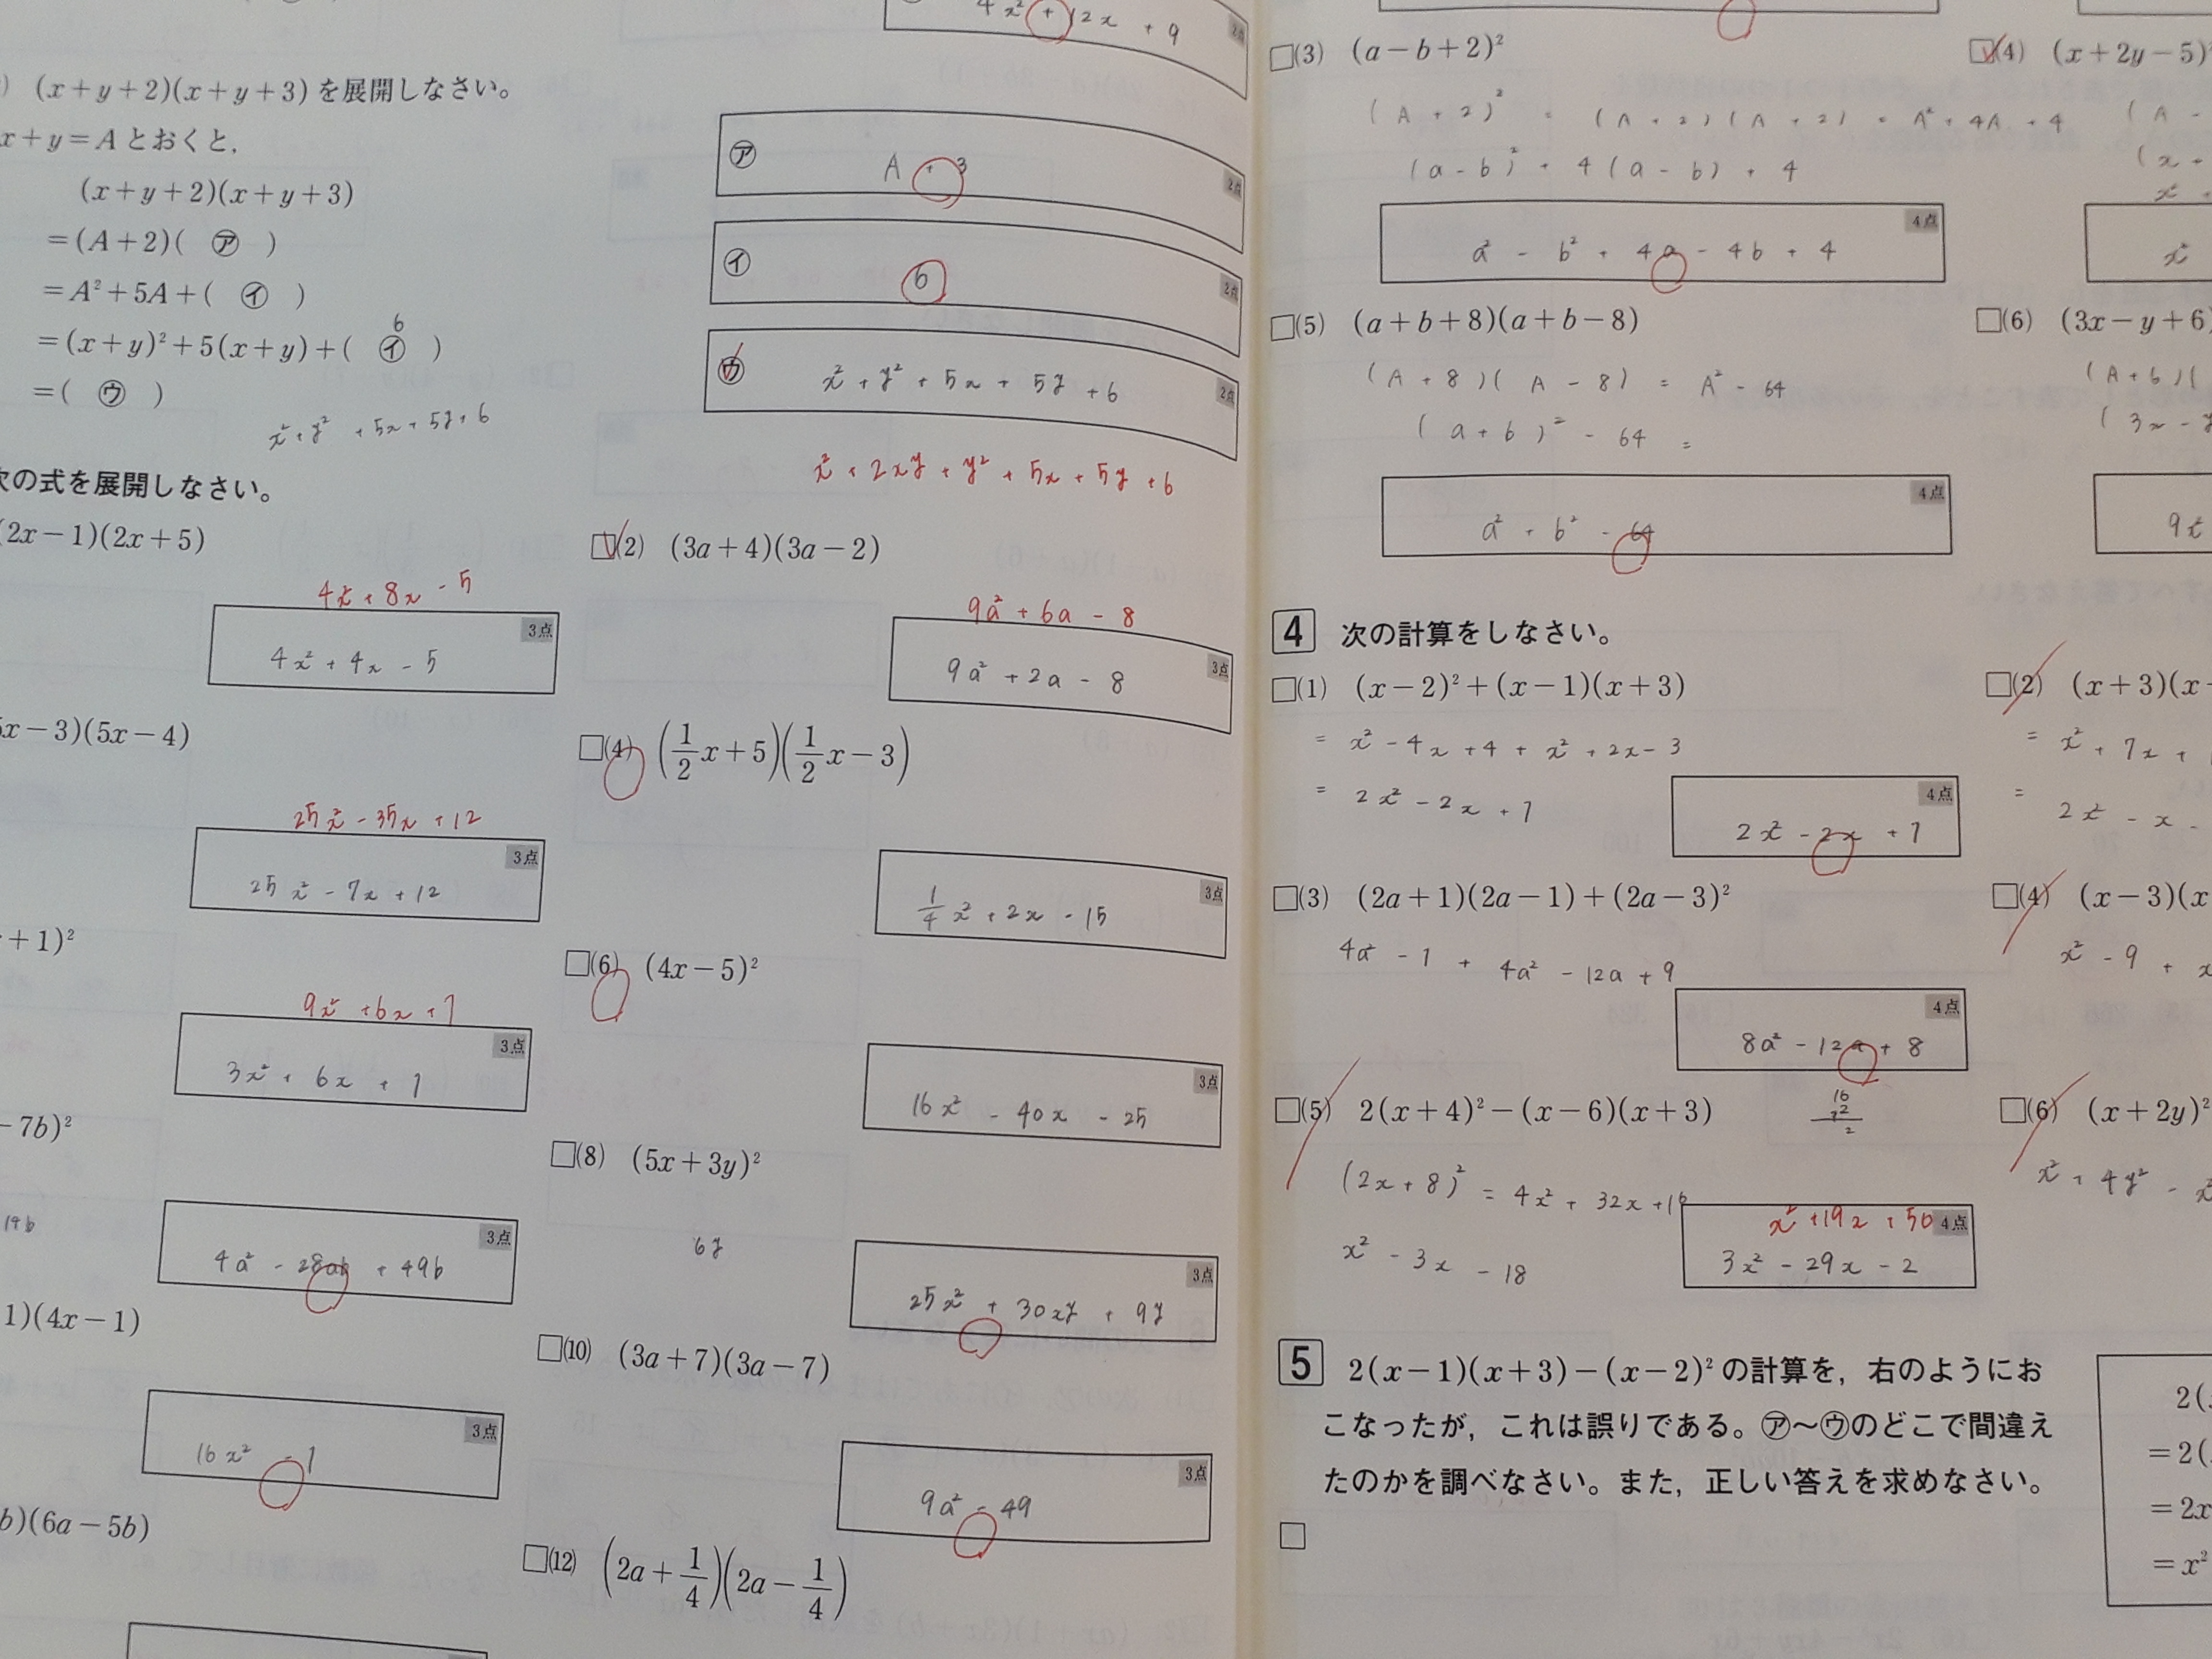 4x² + 12x + 9
2点
(x+y+2)(x+y+3)を展開しなさい。
x+y=Aとおくと，
(x+y+2)(x+y+3)
=(A+2)( ㋐ )
=A²+5A+( ㋑ )
6
=(x+y)²+5(x+y)+( ㋑ )
=( ㋒ )
x²+y² +5x+5y+6
㋐ A + 3 2点
㋑ 6 2点
㋒ x² + y² + 5x + 5y + 6 2点
x² + 2xy + y² + 5x + 5y + 6
次の式を展開しなさい。
(2x−1)(2x+5)
4x² + 8x - 5
3点
4x² + 4x - 5
(2) (3a+4)(3a−2)
9a² + 6a - 8
3点
9a² + 2a - 8
5x−3)(5x−4)
25x² - 35x + 12
3点
25x² - 7x + 12
(4) (1/2 x+5)(1/2 x−3)
3点
1/4 x² + 2x - 15
+1)²
9x² + 6x + 1
3点
3x² + 6x + 1
(6) (4x−5)²
3点
16x² - 40x - 25
−7b)²
19b
3点
4a² - 28ab + 49b
(8) (5x+3y)²
6y
3点
25x² + 30xy + 9y
1)(4x−1)
3点
16x² - 1
(10) (3a+7)(3a−7)
3点
9a² - 49
b)(6a−5b)
(12) (2a+1/4)(2a−1/4)
(3) (a−b+2)²
(A + 2)² = (A + 2)(A + 2) = A² + 4A + 4
(a - b)² + 4(a - b) + 4
4点
a² - b² + 4a - 4b + 4
(4) (x+2y−5)²
(A -
(x +
x²
x²
(5) (a+b+8)(a+b−8)
(A + 8)(A - 8) = A² - 64
(a + b)² - 64 =
4点
a² + b² - 64
(6) (3x−y+6)
(A + 6)(
(3x - y
9x²
4 次の計算をしなさい。
(1) (x−2)²+(x−1)(x+3)
= x² - 4x + 4 + x² + 2x - 3
= 2x² - 2x + 1
4点
2x² - 2x + 1
(2) (x+3)(x
= x² + 7x +
= 2x² - x -
(3) (2a+1)(2a−1)+(2a−3)²
4a² - 1 + 4a² - 12a + 9
4点
8a² - 12a + 8
(4) (x−3)(x
x² - 9 + x
(5) 2(x+4)²−(x−6)(x+3)
(2x + 8)² = 4x² + 32x + 16
x² - 3x - 18
x² + 19x + 50 4点
3x² - 29x - 2
(6) (x+2y)²
x² + 4y² - x²
5 2(x−1)(x+3)−(x−2)²の計算を，右のようにお
こなったが，これは誤りである。㋐〜㋒のどこで間違え
たのかを調べなさい。また，正しい答えを求めなさい。
2(
=2(
=2x
=x²